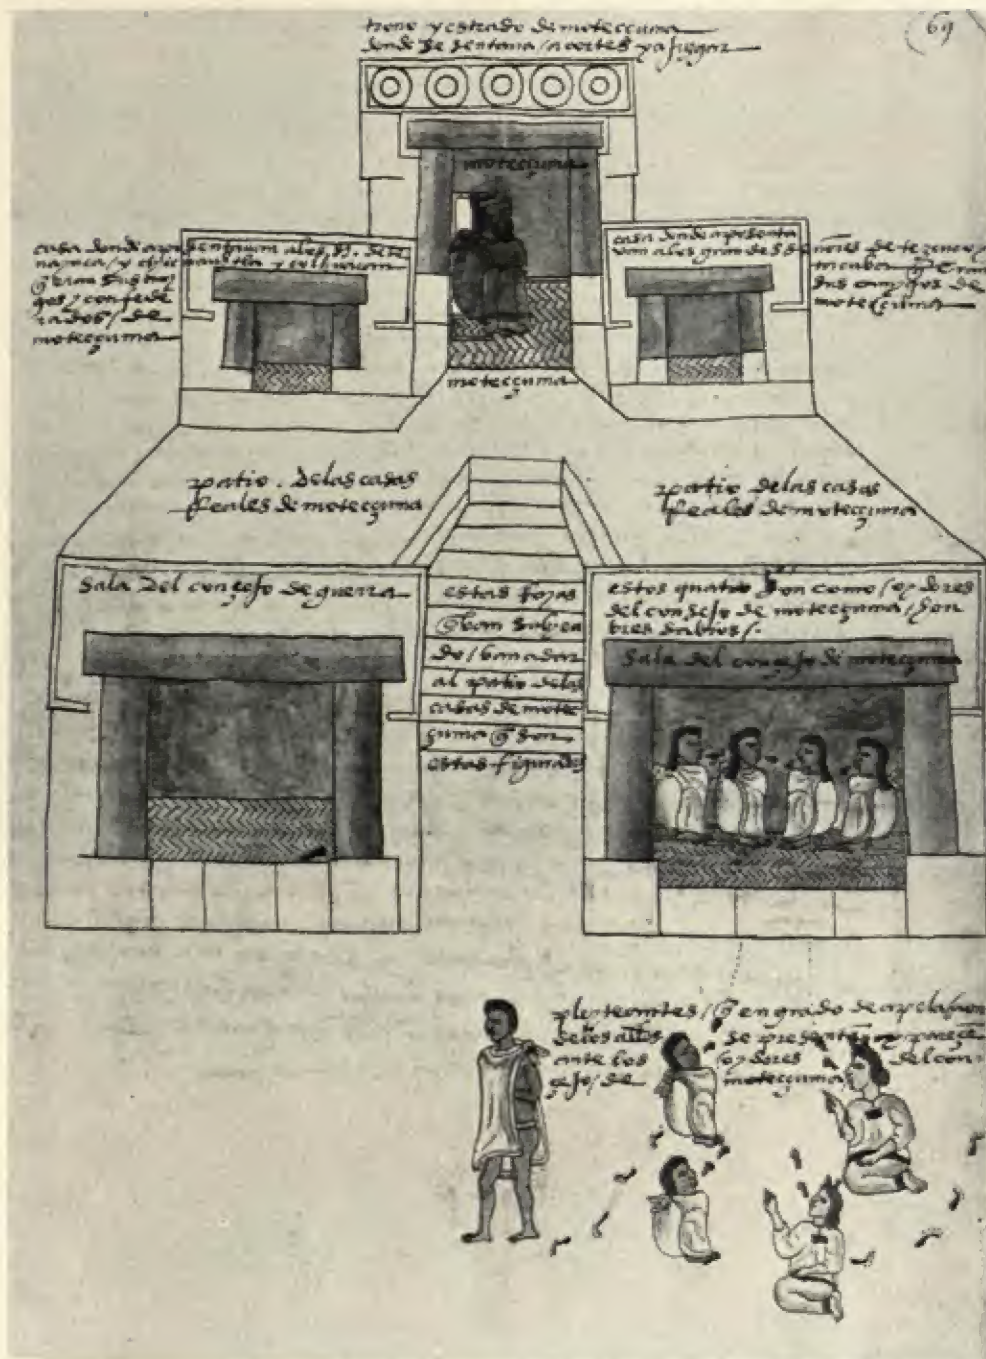 69
trono y estrado de motecçuma
donde se sentava a cortes y a juzgar
motecçuma
casa donde aposentavan a los señores de te
nayuca / y chicnauhtla y colhuacan
q̄ eran sus ami
gos / y confede
rados / de
motecçuma
casa donde aposenta
van a los grandes señores de tezcuco y
tacuba q̄ eran
sus amigos de
motecçuma
motecçuma
patio . de las casas
Reales de motecçuma
patio de las casas
Reales de motecçuma
Sala del consejo de guerra
estas rayas
q̄ van subien
do / van a dar
al patio de las
casas de motec
çuma q̄ son
estas figuradas
estos quatro son como / oydores
del consejo de motecçuma / hon
bres sabios /.
Sala del consejo de motecçuma
pleyteantes / q̄ en grado de apelaçion
de los alldes se presentā y pareçē
ante los oydores del con
sejo / de motecçuma